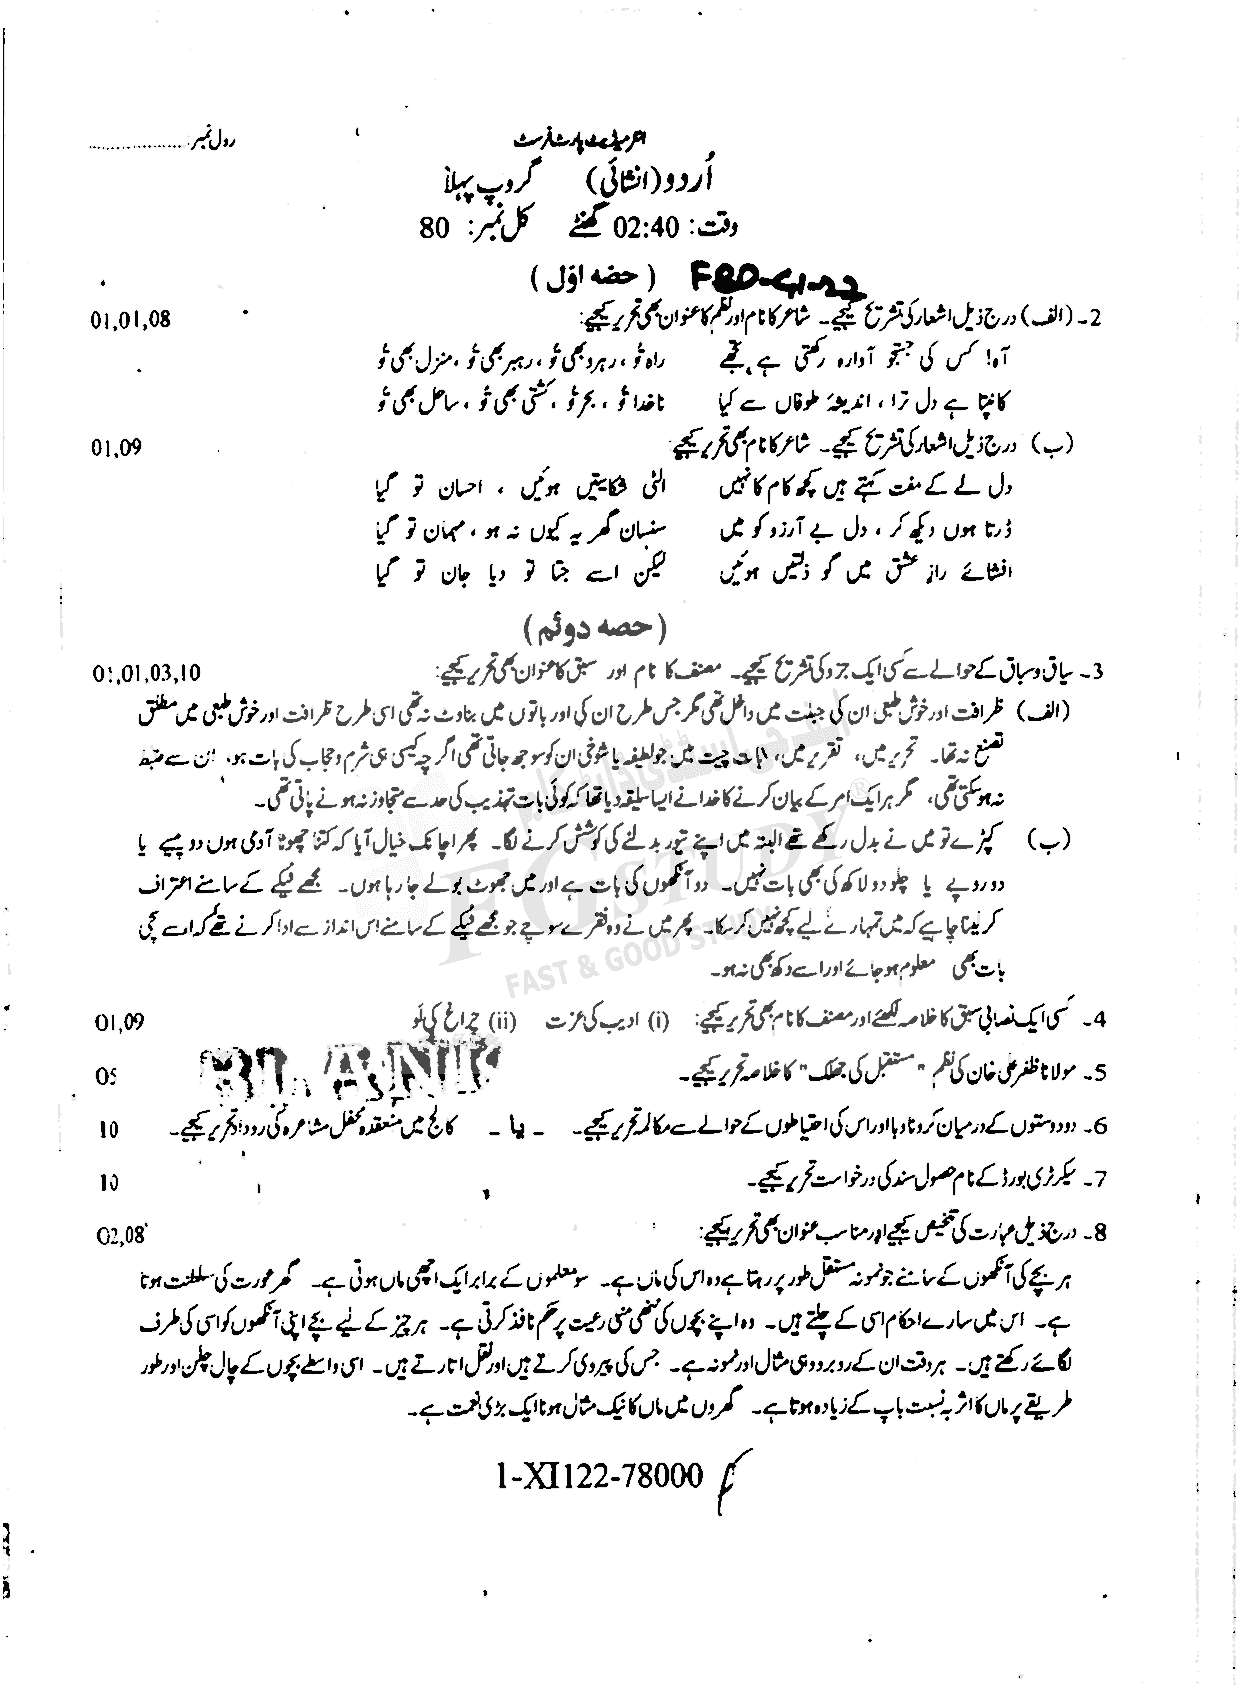 رول نمبر:....................
انٹرمیڈیٹ پارٹ فرسٹ
اُردو (انشائی) گروپ پہلا
وقت: 02:40 گھنٹے کل نمبر: 80
(حصہ اوّل) FBD-G1-22
2- (الف) درج ذیل اشعار کی تشریح کیجیے۔ شاعر کا نام اور نظم کا عنوان بھی تحریر کیجیے: 01,01,08
آہ! کس کی جستجو آوارہ رکھتی ہے تجھے راہ تُو، رہرو بھی تُو، رہبر بھی تُو، منزل بھی تُو
کانپتا ہے دل ترا، اندیشۂ طوفاں سے کیا ناخدا تُو، بحر تُو، کشتی بھی تُو، ساحل بھی تُو
(ب) درج ذیل اشعار کی تشریح کیجیے۔ شاعر کا نام بھی تحریر کیجیے: 01,09
دل لے کے مفت کہتے ہیں کچھ کام کا نہیں الٹی شکایتیں ہوئیں، احسان تو گیا
ڈرتا ہوں دیکھ کر، دل بے آرزو کو میں سنسان گھر یہ کیوں نہ ہو، مہمان تو گیا
افشائے رازِ عشق میں گو ذلتیں ہوئیں لیکن اسے جتا تو دیا جان تو گیا
(حصہ دوئم)
3- سیاق و سباق کے حوالے سے کسی ایک جزو کی تشریح کیجیے۔ مصنف کا نام اور سبق کا عنوان بھی تحریر کیجیے: 01,01,03,10
(الف) ظرافت اور خوش طبعی ان کی جبلت میں داخل تھی مگر جس طرح ان کی اور باتوں میں بناوٹ نہ تھی اسی طرح ظرافت اور خوش طبعی میں مطلق
تصنع نہ تھا۔ تحریر میں، تقریر میں، بات چیت میں جو لطیفہ یا شوخی ان کو سوجھ جاتی تھی اگرچہ کیسی ہی شرم و حجاب کی بات ہو، ان سے ضبط
نہ ہو سکتی تھی، مگر ہر ایک امر کے بیان کرنے کا خدا نے ایسا سلیقہ دیا تھا کہ کوئی بات تہذیب کی حد سے متجاوز نہ ہونے پاتی تھی۔
(ب) کپڑے تو میں نے بدل رکھے تھے البتہ میں اپنے تیور بدلنے کی کوشش کرنے لگا۔ پھر اچانک خیال آیا کہ کتنا چھوٹا آدمی ہوں دو پیسے یا
دو روپے یا چلو دو لاکھ کی بھی بات نہیں۔ دو آنکھوں کی بات ہے اور میں جھوٹ بولے جا رہا ہوں۔ مجھے فیکے کے سامنے اعتراف
کر لینا چاہیے کہ میں تمہارے لیے کچھ نہیں کر سکا۔ پھر میں نے دو فقرے سوچے جو مجھے فیکے کے سامنے اس انداز سے ادا کرنے تھے کہ اسے سچی
بات بھی معلوم ہو جائے اور اسے دکھ بھی نہ ہو۔
FG STUDY
FAST & GOOD STUDY
4- کسی ایک نصابی سبق کا خلاصہ لکھیے اور مصنف کا نام بھی تحریر کیجیے: (i) ادیب کی عزت (ii) چراغ کی لَو 01,09
5- مولانا ظفر علی خان کی نظم "مستقبل کی جھلک" کا خلاصہ تحریر کیجیے۔ 05
BLANK
6- دو دوستوں کے درمیان کرونا وبا اور اس کی احتیاطوں کے حوالے سے مکالمہ تحریر کیجیے۔ - یا - کالج میں منعقدہ محفل مشاعرہ کی روداد تحریر کیجیے۔ 10
7- سیکرٹری بورڈ کے نام حصول سند کی درخواست تحریر کیجیے۔ 10
8- درج ذیل عبارت کی تلخیص کیجیے اور مناسب عنوان بھی تحریر کیجیے: 02,08
ہر بچے کی آنکھوں کے سامنے جو نمونہ مستقل طور پر رہتا ہے وہ اس کی ماں ہے۔ سو معلموں کے برابر ایک اچھی ماں ہوتی ہے۔ گھر عورت کی سلطنت ہوتا
ہے۔ اس میں سارے احکام اسی کے چلتے ہیں۔ وہ اپنے بچوں کی ننھی منی رعیت پر حکم نافذ کرتی ہے۔ ہر چیز کے لیے بچے اپنی آنکھوں کو اسی کی طرف
لگائے رکھتے ہیں۔ ہر وقت ان کے روبرو وہی مثال اور نمونہ ہے۔ جس کی پیروی کرتے ہیں اور نقل اتارتے ہیں۔ اسی واسطے بچوں کے چال چلن اور طور
طریقے پر ماں کا اثر بہ نسبت باپ کے زیادہ ہوتا ہے۔ گھروں میں ماں کا نیک مثال ہونا ایک بڑی نعمت ہے۔
1-XI122-78000